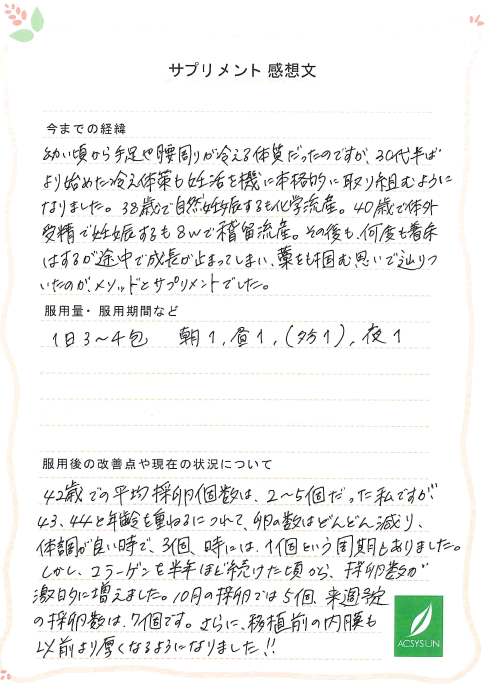 サプリメント 感想文
今までの経緯
幼い頃から手足や腰周りが冷える体質だったのですが、30代半ば
より始めた冷え体策も妊活を機に本格的に取り組むように
なりました。38歳で自然妊娠するも化学流産。40歳で体外
受精で妊娠するも8wで稽留流産。その後も、何度も着床
はするが途中で成長が止まってしまい、藁をも掴む思いで辿りつ
いたのが、メソッドとサプリメントでした。
服用量・服用期間など
1日3～4包 朝1, 昼1, (夕方1), 夜1
服用後の改善点や現在の状況について
42歳での平均採卵個数は、2～5個だった私ですが
43、44と年齢を重ねるにつれて、卵の数はどんどん減り、
体調が良い時で、3個、時には、1個という周期もありました。
しかし、コラーゲンを半年ほど続けた頃から、採卵数が
激的に増えました。10月の採卵では5個、来週予定
の採卵数は、7個です。さらに、移植前の内膜も
以前より厚くなるようになりました!!
ACSYS LIN